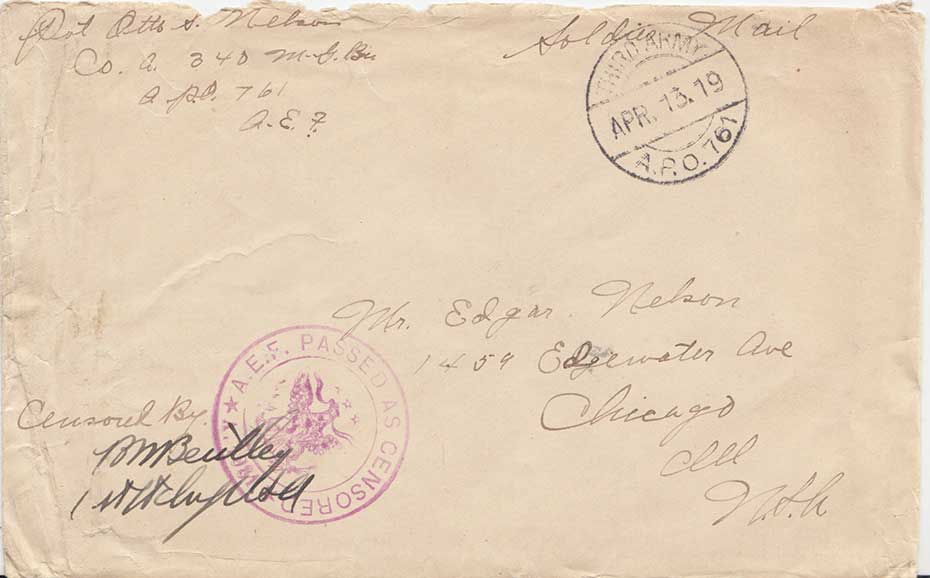 Pvt Otto S. Nelson
Co. A. 340 M.G. Bn
A.P.O. 761
A.E.F.
Soldier Mail
THIRD ARMY
APR. 13. 19
A.P.O. 761
Mr. Edgar. Nelson
1459 Edgewater Ave
Chicago
Ill
U.S.A
A.E.F. PASSED AS CENSORED
Censord By.